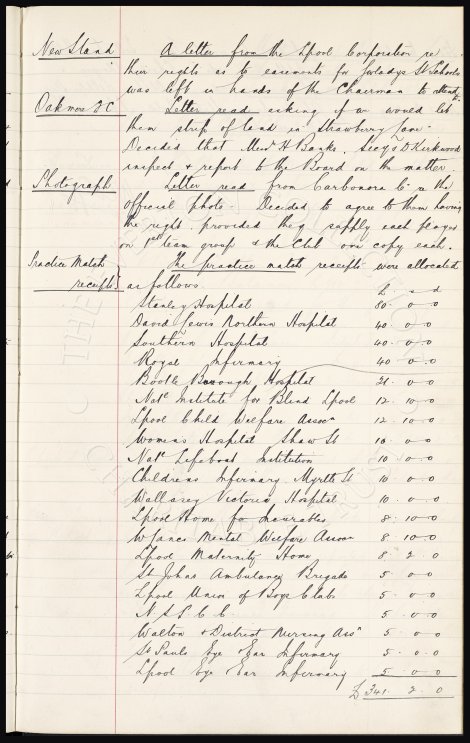 New Stand A letter from the Lpool Corporation re
their rights as to easements for Gwladys St Schools
was left in hands of the Chairman to attend to.
Oakmere F C Letter read asking if we would let
them strip of land in Strawberry Lane.
Decided that Messrs H Banks, Secy & D Kirkwood
inspect & report to the Board on the matter.
Photograph Letter read from Carbonora Co re the
official photo. Decided to agree to them having
the right provided they supply each player
on 1st team group & the Club one copy each.
Practice Match The practice match receipts were allocated
receipts as follows £ s d
Stanley Hospital 80 0 0
David Lewis Northern Hospital 40 0 0
Southern Hospital 40 0 0
Royal Infirmary 40 0 0
Bootle Borough Hospital 21 0 0
Natl Institute for Blind Lpool 12 10 0
Lpool Child Welfare Assocn 12 10 0
Womens Hospital Shaw St 10 0 0
Natl Lifeboat Institution 10 0 0
Childrens Infirmary Myrtle St 10 0 0
Wallasey Victoria Hospital 10 0 0
Lpool Home for Incurables 8 10 0
Lancs Mental Welfare Assocn 8 10 0
Lpool Maternity Home 8 2 0
St Johns Ambulance Brigade 5 0 0
Lpool Union of Boys Clubs 5 0 0
N S P C C 5 0 0
Walton & District Nursing Assn 5 0 0
St Pauls Eye & Ear Infirmary 5 0 0
Lpool Eye & Ear Infirmary 5 0 0
£341 2 0